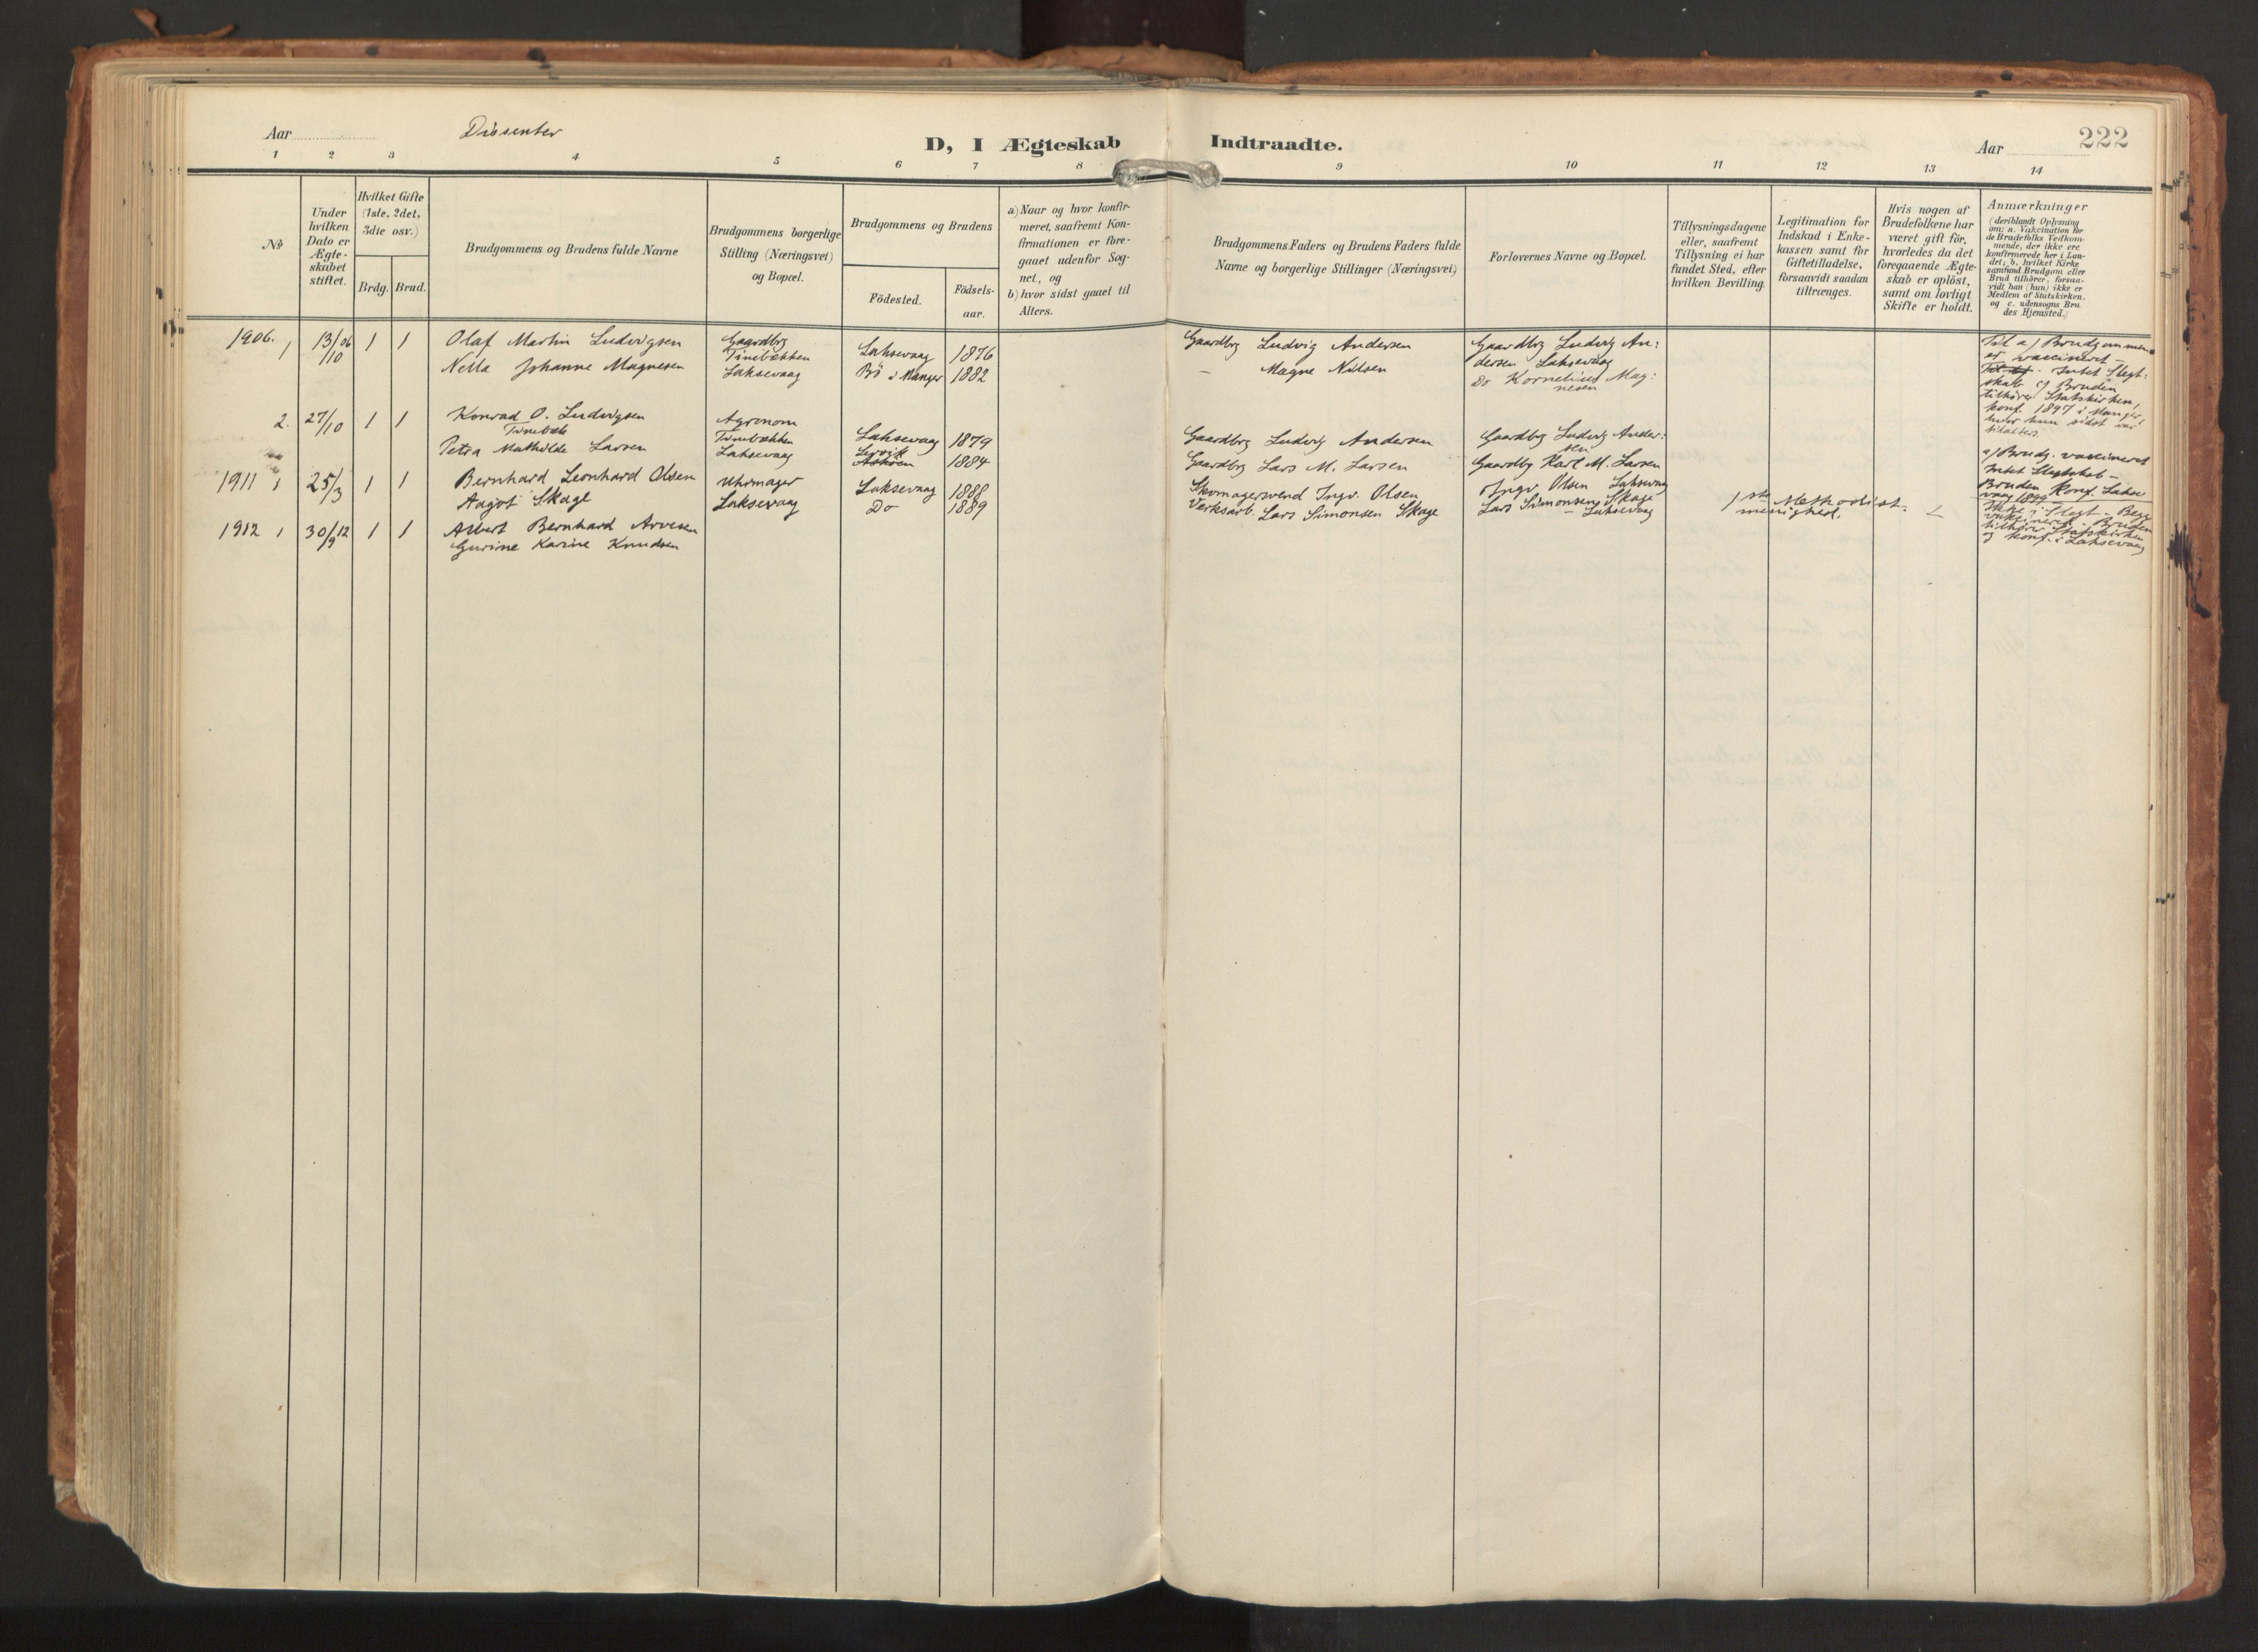 Aar
Dissenter
D, I Ægteskab Indtraadte.
Aar
222
1 2 3 4 5 6 7 8 9 10 11 12 13 14
No
Under
hvilken
Dato er
Ægte-
skabet
stiftet.
Hvilket Gifte
(1ste, 2det,
3die osv.)
Brdg. Brud.
Brudgommens og Brudens fulde Navne
Brudgommens borgerlige
Stilling (Næringsvei)
og Bopæl.
Brudgommens og Brudens
Födested.
Födsels-
aar.
a) Naar og hvor konfir-
meret, saafremt Kon-
firmationen er fore-
gaaet udenfor Sog-
net, og
b) hvor sidst gaaet til
Alters.
Brudgommens Faders og Brudens Faders fulde
Navne og borgerlige Stillinger (Næringsvei)
Forlovernes Navne og Bopæl.
Tillysningsdagene
eller, saafremt
Tillysning ei har
fundet Sted, efter
hvilken Bevilling.
Legitimation for
Indskud i Enke-
kassen samt for
Giftetilladelse,
forsaavidt saadan
tiltrænges.
Hvis nogen af
Brudefolkene har
været gift för,
hvorledes da det
foregaaende Ægte-
skab er oplöst,
samt om lovligt
Skifte er holdt.
Anmærkninger
(deriblandt Oplysning
om: a. Vakcination för
de Brudefolks Vedkom-
mende, der ikke ere
konfirmerede her i Lan-
det; b. hvilket Kirke
samfund Brudgom eller
Brud tilhörer, forsaa-
vidt han (hun) ikke er
Medlem af Statskirken,
og c. udensogns Bru
des Hjemsted.)
1906.
1 13/10 06 1 1
Olaf Martin Ludvigsen
Nella Johanne Magnesen
Gaardbrg
Tinebækken
Laksevaag
Laksevaag 1876
Bö i Manger 1882
Gaardbrg Ludvig Andersen
— Magne Nilsen
Gaardbrg Ludvig An:
dersen Laksevaag
Do Kornelius Mag:
nesen
Til a) Brudgommen
er vaccineret –
Intet Slegt:
skab c) Bruden
tilhörer Statskirken,
konf. 1897 i Manger,
hvor hun sidst var
tilalters.
2. 27/10 1 1
Konrad O. Ludvigsen
Tinebæk
Petra Mathilde Larsen
Agronom
Tinebækken
Laksevaag
Laksevaag 1879
Lervik
Askøen 1884
Gaardbrg Ludvig Andersen
Gaardbrg Lars M. Larsen
Gaardbrg Ludvig Ander:
sen
Gaardbg Karl M. Larsen
a) Brudg. vaccineret
Intet Slegtskab –
Bruden Konf. Lakse
vaag 1899
1911 1 25/3 1 1
Bernhard Leonhard Olsen
Aagot Skage
Uhrmager
Laksevaag
Laksevaag 1888
Do 1889
Skomagersvend Ingv. Olsen
Verksarb. Lars Simonsen Skage
Ingv Olsen Laksevaag
Lars Simonsen Skage
– Laksevaag
1ste Methodist-
menighed.
Ikke i Slegt – Begge
vakcineret – Bruden
tilhører Statskirken
og konf. i Laksevaag
1912 1 30/9 12 1 1
Albert Bernhard Arvesen
Gurine Karine Knudsen